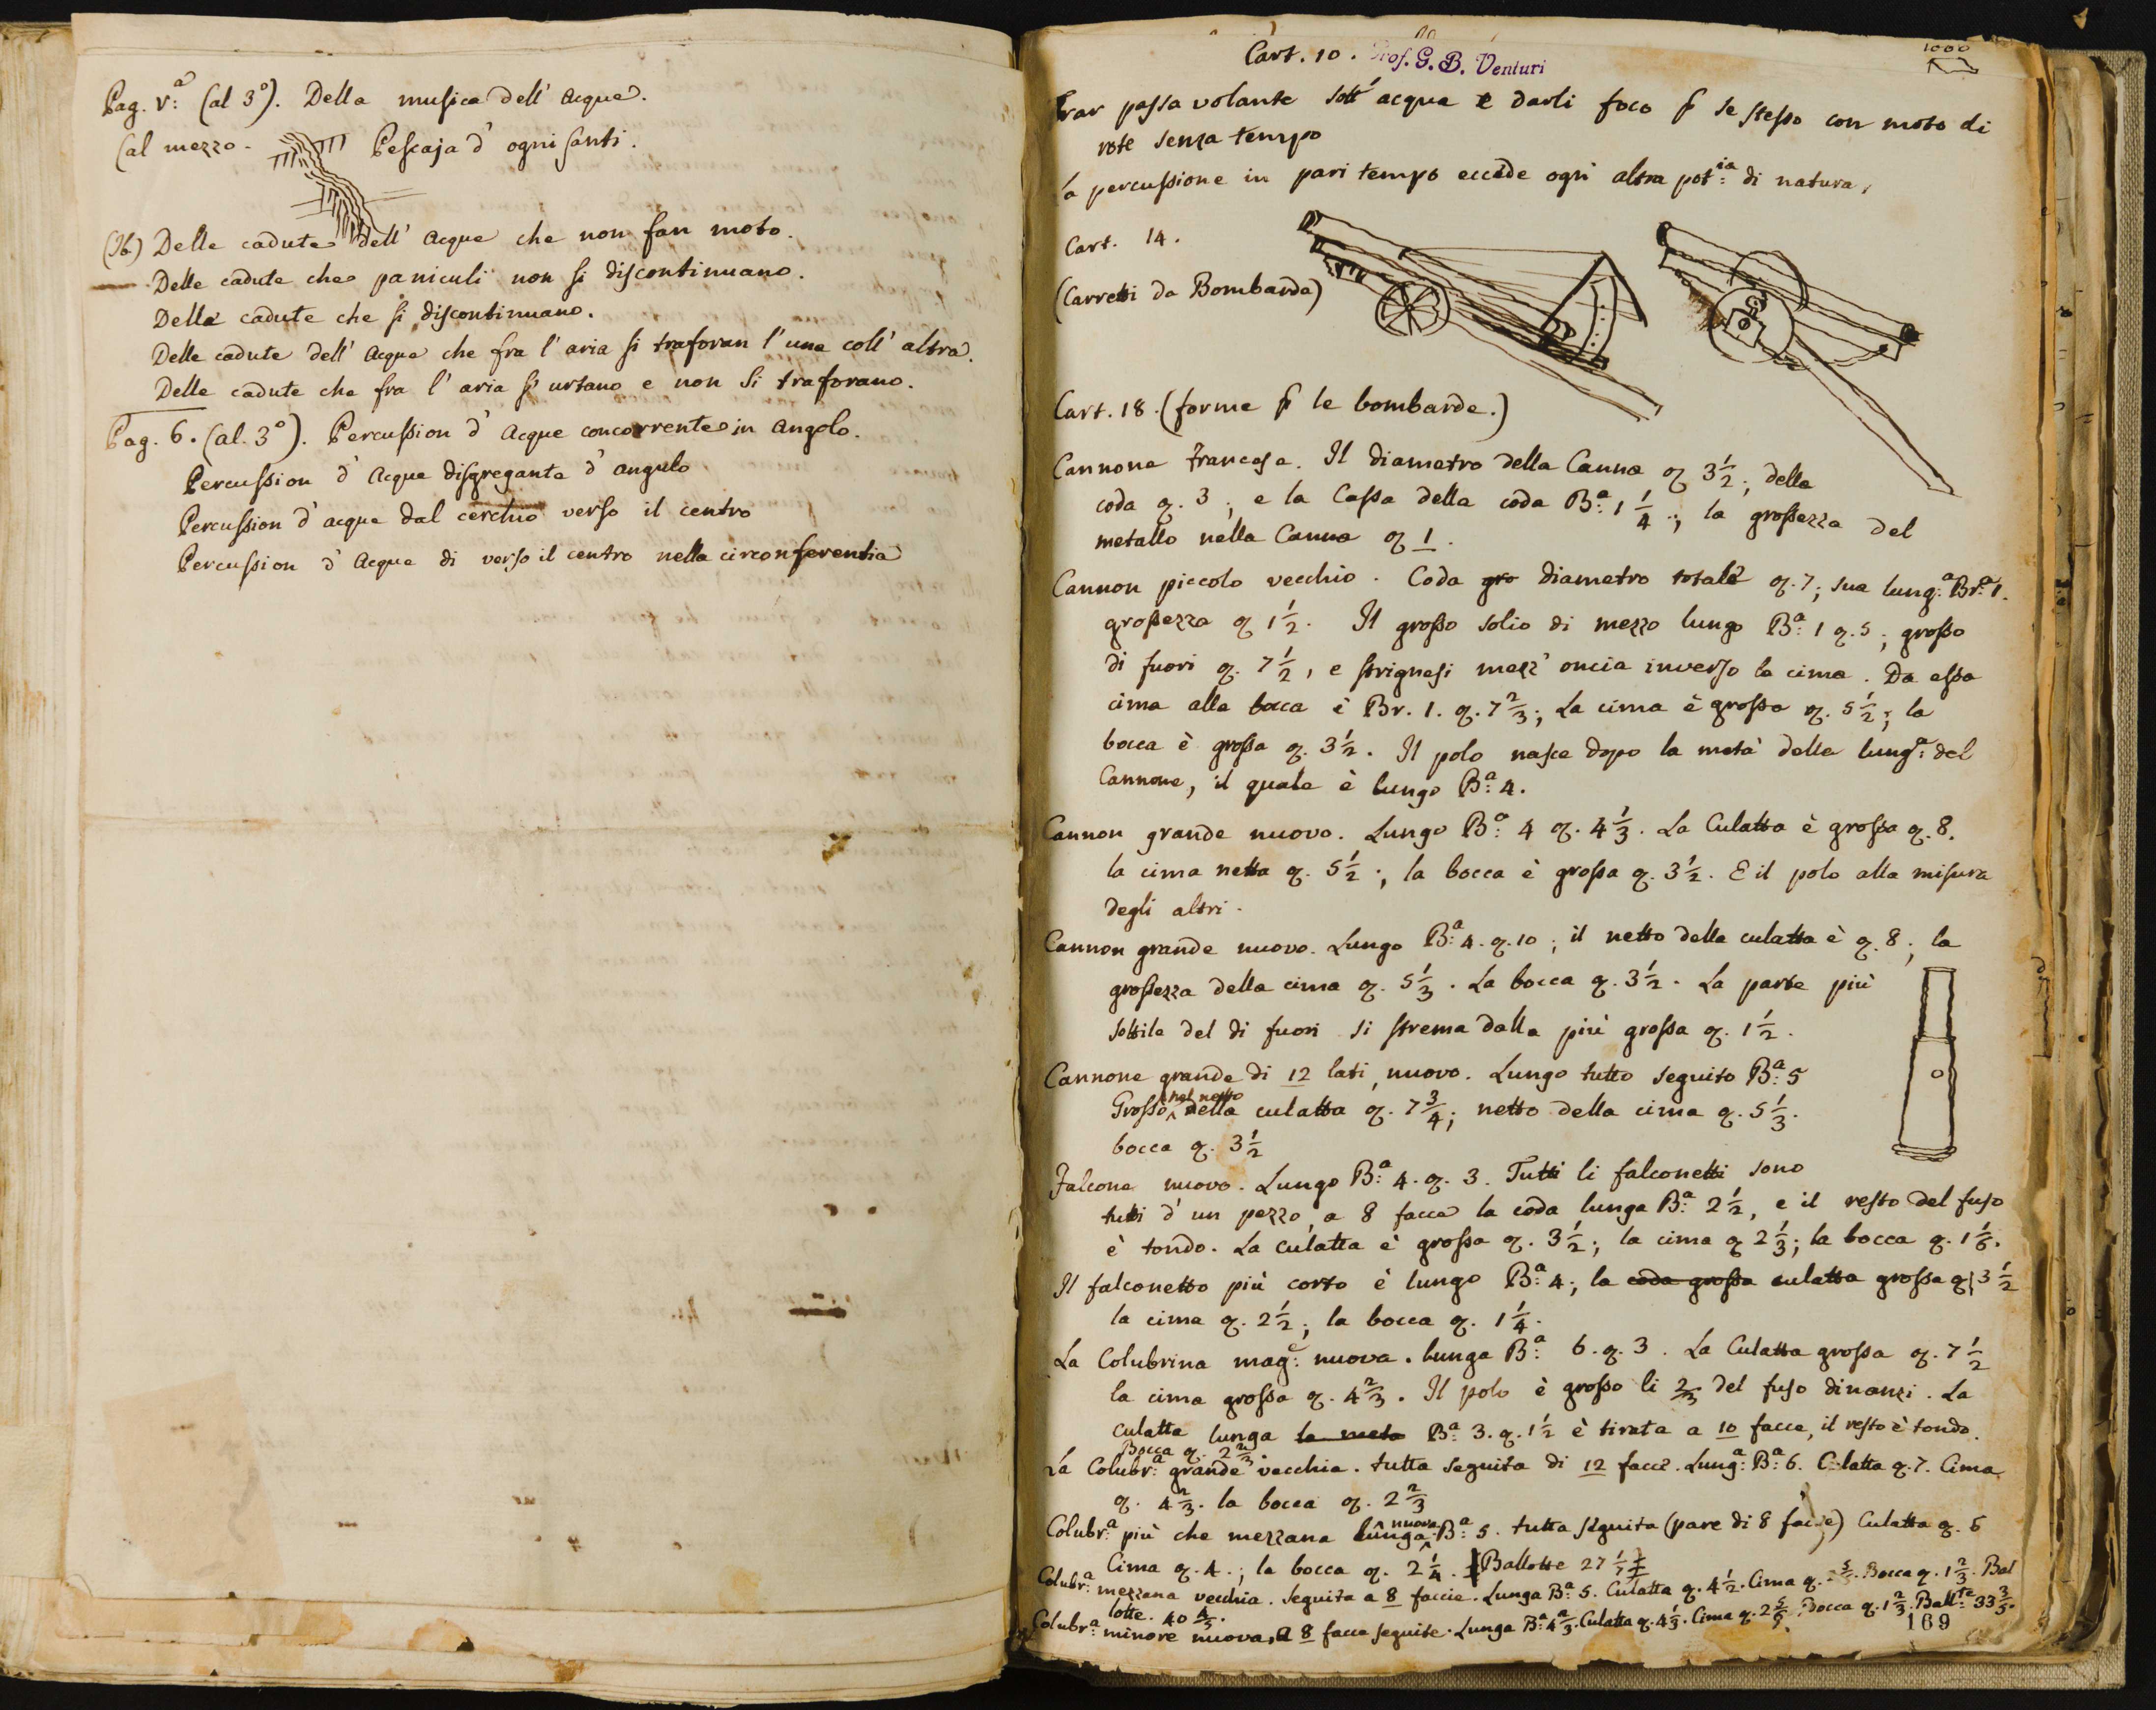 Pag. v:ª (al 3º). Della musica dell' acqua.
(al mezzo. Pescaja d' ogni santi.
(Ib) Delle cadute dell' acque che non fan moto.
Delle cadute che paniculi non si discontinuano.
Delle cadute che si discontinuano.
Delle cadute dell' acque che fra l' aria si traforan l' una coll' altra.
Delle cadute che fra l' aria si urtano e non si traforano.
Pag. 6. (al. 3º). Percussion d' acque concorrente in angolo.
Percussion d' acqua disgregante d' angulo
Percussion d' acqua dal cerchio verso il centro
Percussion d' acqua di verso il centro nella circonferentia
Cart. 10. Prof. G. B. Venturi
1000
Trar passa volante sott' acqua e darli foco p se stesso con moto di
rote senza tempo
la percussione in pari tempo eccede ogni altra pot:ia di natura,
Cart. 14.
(Carretti da Bombarda)
Cart. 18. (forme p le bombarde.)
Cannone francese. Il diametro della Canna q 3 1/2; della
coda q. 3; e la Cassa della coda B:ª 1 1/4; la grossezza del
metallo nella Canna q 1.
Cannon piccolo vecchio. Coda gro diametro totale q. 7; sua lung:ª Br:ª 1.
grossezza q 1 1/2. Il grosso solio di mezzo lungo B:ª 1 q. 5; grosso
di fuori q. 7 1/2, e strignesi mezz' oncia inverso la cima. Da essa
cima alla bocca è Br. 1. q. 7 2/3; la cima è grossa q. 5 1/2; la
bocca è grossa q. 3 1/2. Il polo nasce dopo la metà della lung:ª del
Cannone, il quale è lungo B:ª 4.
Cannon grande nuovo. Lungo B:ª 4 q. 4 1/3. La Culatta è grossa q. 8.
la cima netta q. 5 1/2; la bocca è grossa q. 3 1/2. E il polo alla misura
degli altri.
Cannon grande nuovo. Lungo B:ª 4. q. 10; il netto della culatta è q. 8; la
grossezza della cima q. 5 1/3. La bocca q. 3 1/2. La parte più
sottile del di fuori si strema dalla più grossa q. 1 1/2.
Cannone grande di 12 lati, nuovo. Lungo tutto seguito B:ª 5
Grosso nel netto della culatta q. 7 3/4; netto della cima q. 5 1/3.
bocca q. 3 1/2
Falcone nuovo. Lungo B:ª 4. q. 3. Tutti li falconetti sono
tutti d' un pezzo, a 8 facce la coda lunga B:ª 2 1/2, e il resto del fuso
è tondo. La culatta è grossa q. 3 1/2; la cima q 2 1/3; la bocca q. 1 1/6.
Il falconetto più corto è lungo B:ª 4; la coda grossa culatta grossa q. 3 1/2
la cima q. 2 1/2; la bocca q. 1 1/4.
La Colubrina mag:e nuova. lunga B:ª 6. q. 3. La Culatta grossa q. 7 1/2
la cima grossa q. 4 2/3. Il polo è grosso li 2/3 del fuso dinanzi. La
culatta lunga la meta B:ª 3. q. 1 1/2 è tirata a 10 facce, il resto è tondo.
Bocca q. 2 2/3.
La Colubr:ª grande vecchia. tutta seguita di 12 facce. Lung:ª B:ª 6. Culatta q. 7. Cima
q. 4 2/3. la bocca q. 2 2/3
Colubr:ª più che mezzana lunga nuova B:ª 5. tutta seguita (pare di 8 facce) Culatta q. 6
Cima q. 4.; la bocca q. 2 1/4. Ballotte 27 1/7
Colubr:ª mezzana vecchia. seguita a 8 faccie. Lunga B:ª 5. Culatta q. 4 1/2. Cima q. Bocca q. 1 2/3. Bal
lotte. 40 4/5.
Colubr:ª minore nuova, a 8 facce seguite. Lunga B:ª 4 2/3. Culatta q. 4 1/3. Cima q. 2 Bocca q. 1 2/3. Ball:te 33 3/5.
169